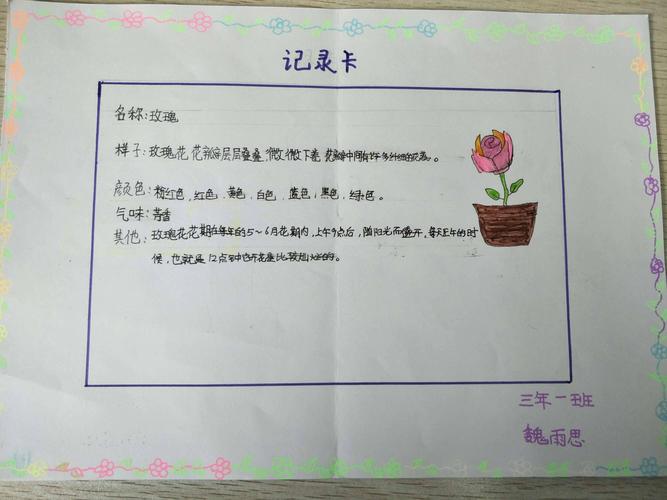 记录卡
名称:玫瑰
样子:玫瑰花花瓣层层叠叠,微微下卷,花瓣中间有许多纤细的花蕊。
颜色:粉红色,红色,黄色,白色,蓝色,黑色,绿色。
气味:芳香
其他:玫瑰花花期在每年的5~6月花期内,上午9点后,随阳光而盛开,每天正午的时
候,也就是12点钟也开花是比较灿烂的。
三年一班
魏雨思